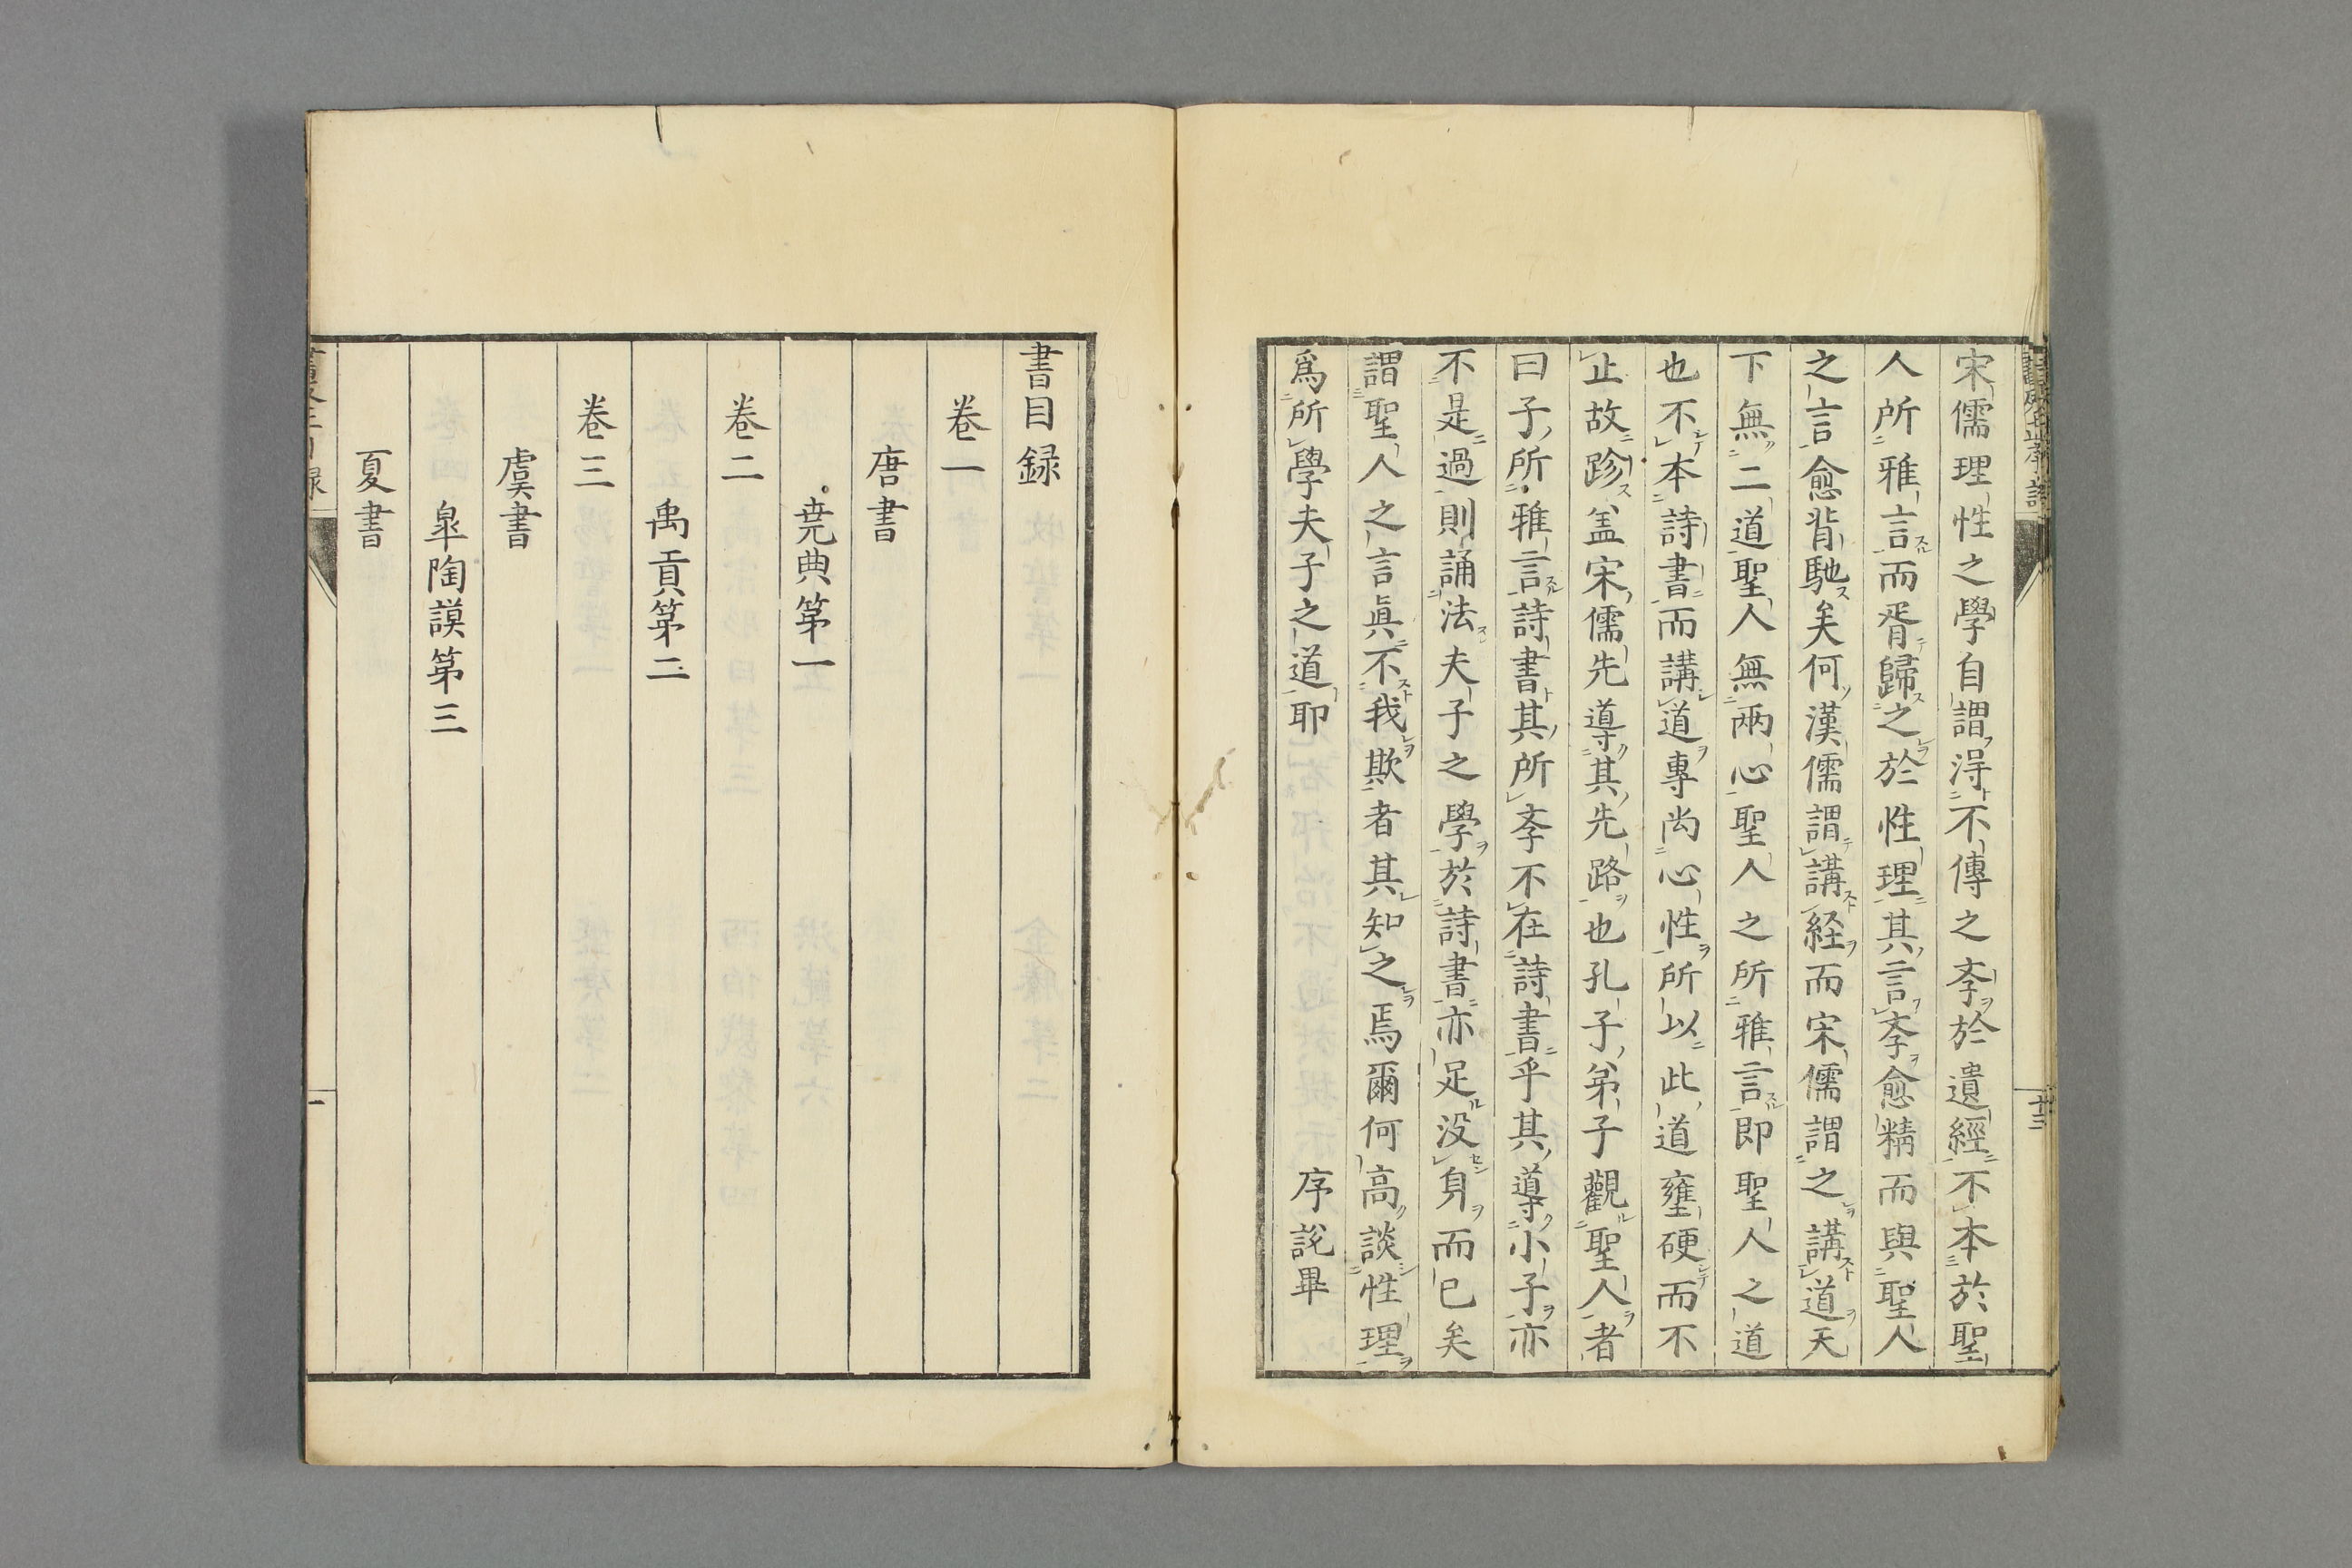 宋儒理性之學自謂淂不傳之斈於遺經不本於聖
人所雅言而胥歸之於性理其言斈愈精而與聖人
之言愈背馳矣何漢儒謂講経而宋儒謂之講道天
下無二道聖人無兩心聖人之所雅言即聖人之道
也不本詩書而講道專尚心性所以此道壅硬而不
止故跡盖宋儒先導其先路也孔子弟子觀聖人者
曰子所雅言詩書其所斈不在詩書乎其導小子亦
不是過則誦法夫子之學於詩書亦足没身而已矣
謂聖人之言眞不我欺者其知之焉爾何高談性理
爲所學夫子之道耶
序説畢
十三
書目録
卷一
唐書
尭典第一
卷二
禹貢第二
卷三
虞書
皐陶謨第三
夏書
一